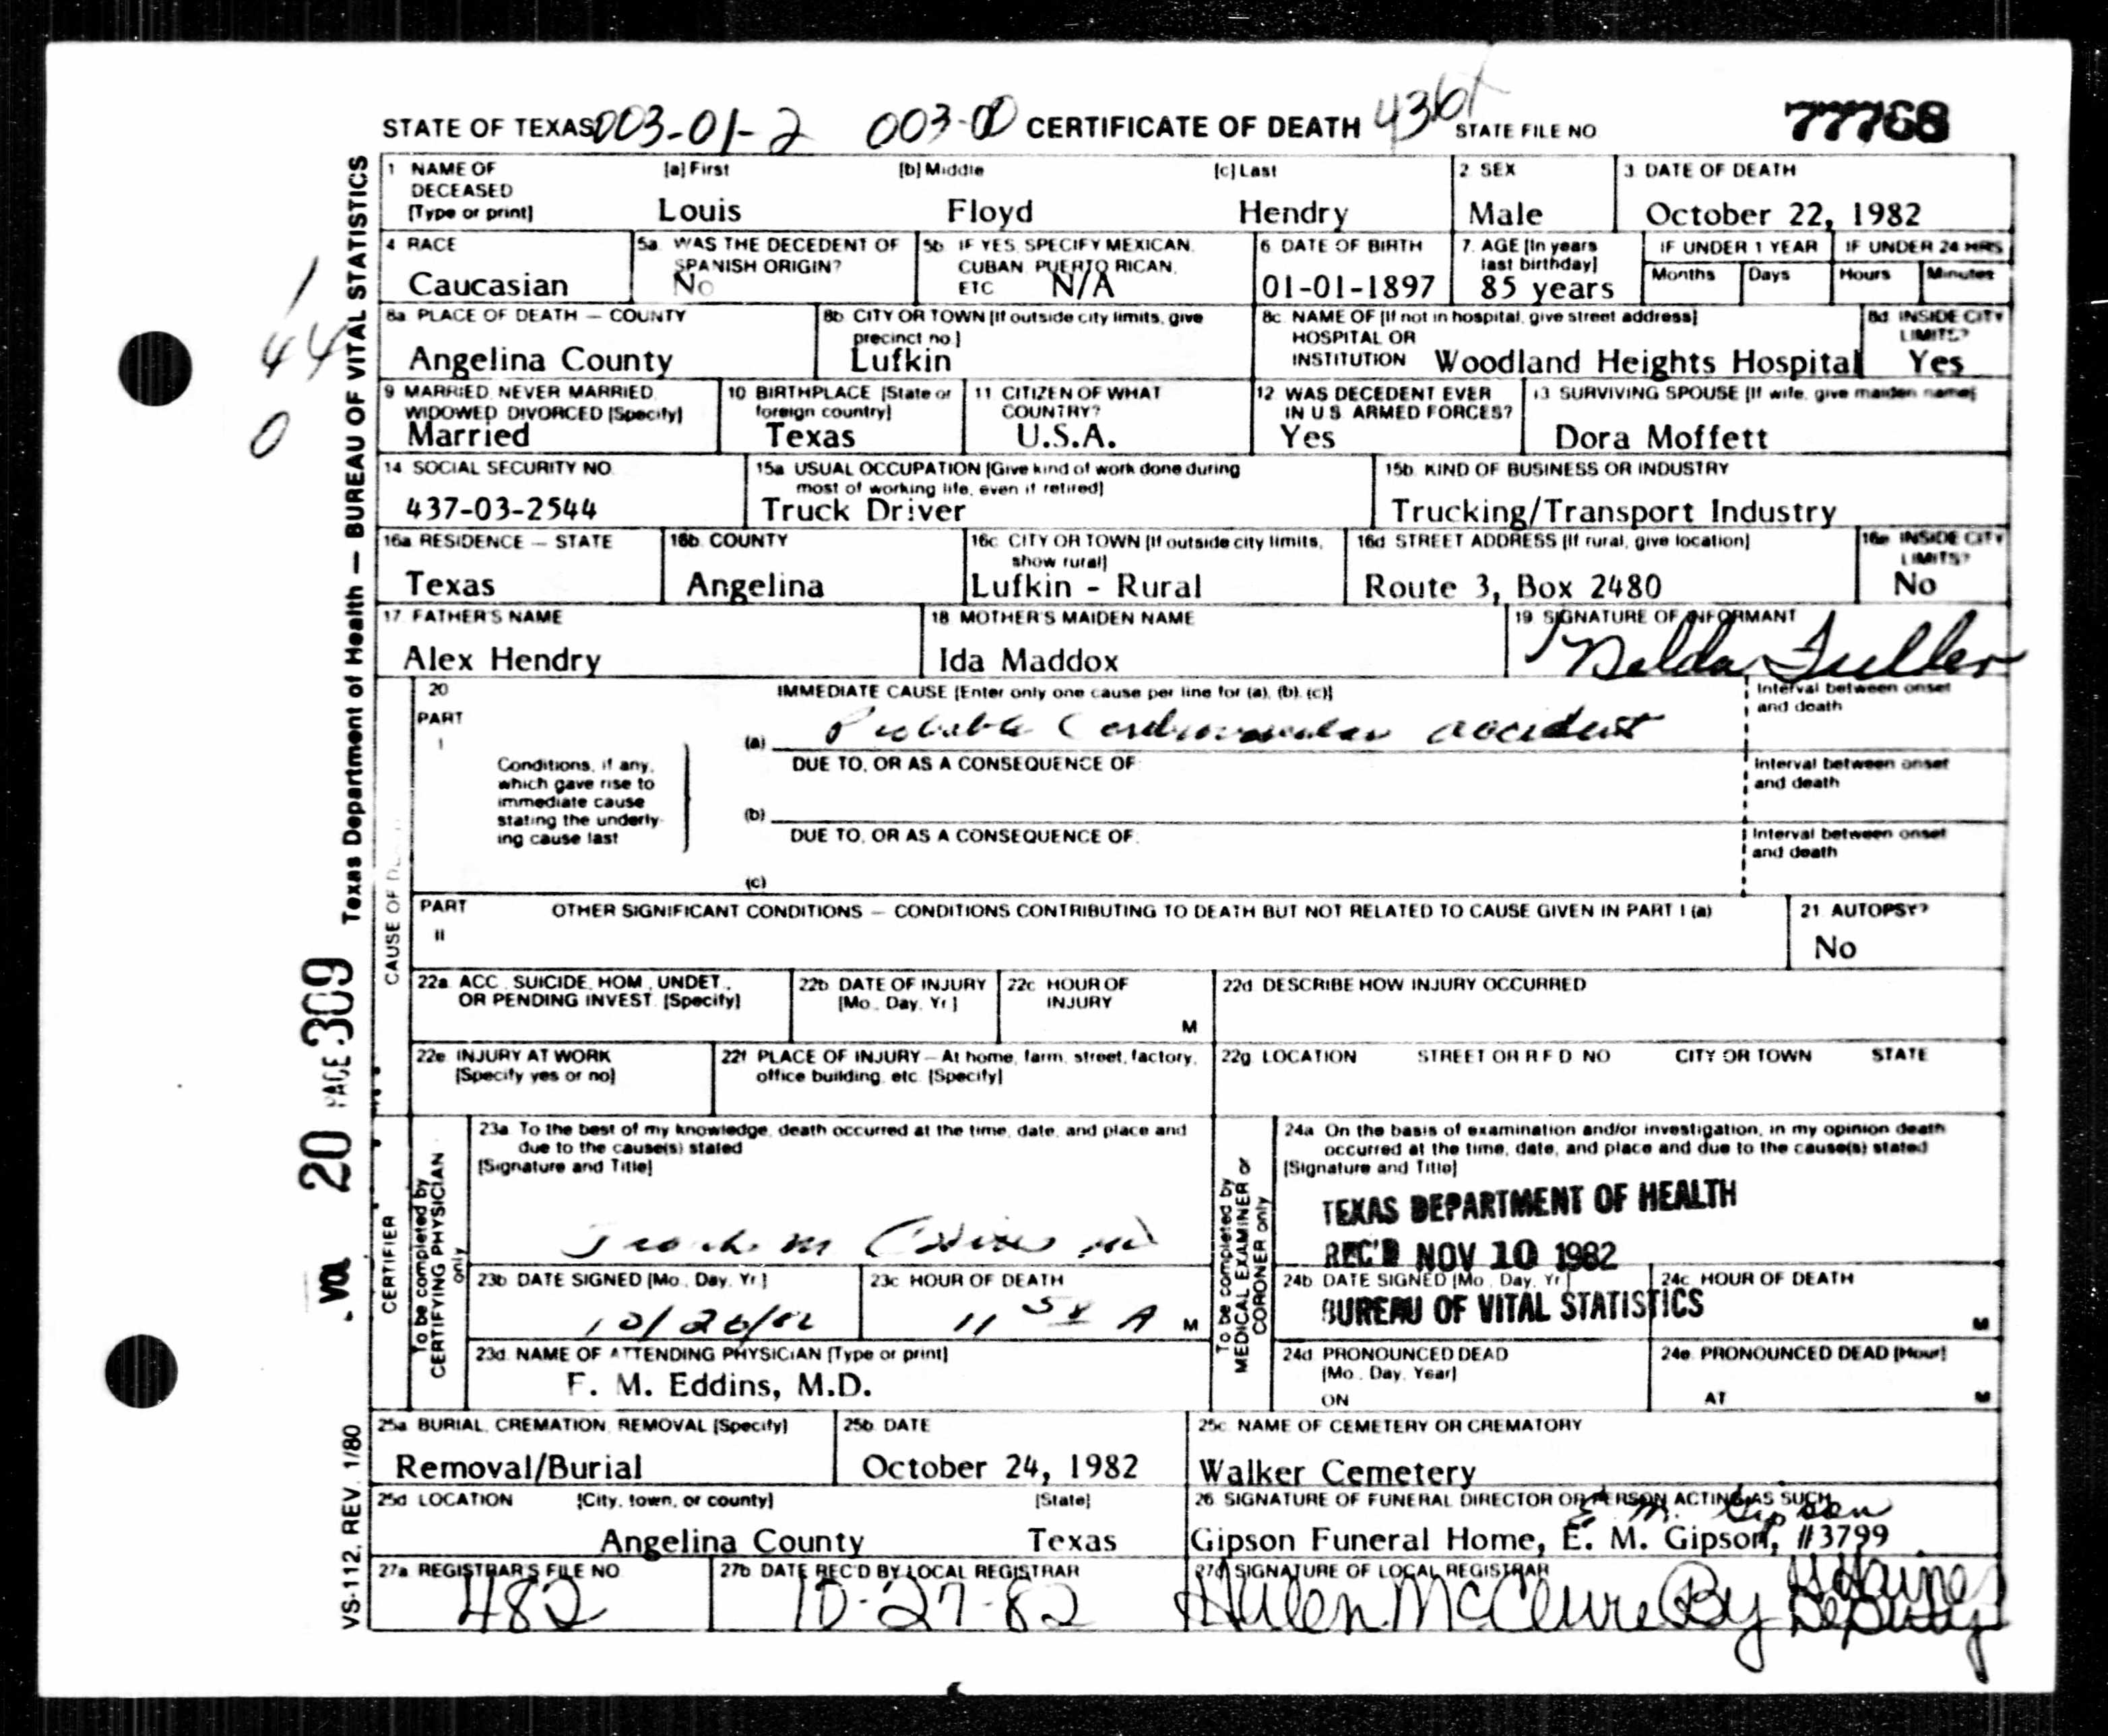 STATE OF TEXAS 003-01-2 003-00 CERTIFICATE OF DEATH 436 STATE FILE NO. 77768
Texas Department of Health — BUREAU OF VITAL STATISTICS
1 44 0
1 NAME OF DECEASED [Type or print] [a] First [b] Middle [c] Last 2 SEX 3 DATE OF DEATH
Louis Floyd Hendry Male October 22, 1982
4 RACE 5a WAS THE DECEDENT OF SPANISH ORIGIN? 5b IF YES, SPECIFY MEXICAN, CUBAN, PUERTO RICAN, ETC 6 DATE OF BIRTH 7. AGE [In years last birthday] IF UNDER 1 YEAR IF UNDER 24 HRS
Months Days Hours Minutes
Caucasian No N/A 01-01-1897 85 years
8a PLACE OF DEATH — COUNTY 8b CITY OR TOWN [If outside city limits, give precinct no.] 8c NAME OF [If not in hospital, give street address] HOSPITAL OR INSTITUTION 8d INSIDE CITY LIMITS?
Angelina County Lufkin Woodland Heights Hospital Yes
9 MARRIED, NEVER MARRIED, WIDOWED, DIVORCED [Specify] 10 BIRTHPLACE [State or foreign country] 11 CITIZEN OF WHAT COUNTRY? 12 WAS DECEDENT EVER IN U.S. ARMED FORCES? 13 SURVIVING SPOUSE [If wife, give maiden name]
Married Texas U.S.A. Yes Dora Moffett
14 SOCIAL SECURITY NO. 15a USUAL OCCUPATION [Give kind of work done during most of working life, even if retired] 15b KIND OF BUSINESS OR INDUSTRY
437-03-2544 Truck Driver Trucking/Transport Industry
16a RESIDENCE — STATE 16b COUNTY 16c CITY OR TOWN [If outside city limits, show rural] 16d STREET ADDRESS [If rural, give location] 16e INSIDE CITY LIMITS?
Texas Angelina Lufkin - Rural Route 3, Box 2480 No
17 FATHER'S NAME 18 MOTHER'S MAIDEN NAME 19 SIGNATURE OF INFORMANT
Alex Hendry Ida Maddox Nelda Fuller
CAUSE OF
20 IMMEDIATE CAUSE [Enter only one cause per line for (a), (b), (c)] Interval between onset and death
PART I
(a) Probable Cerebrovascular accident
Conditions, if any, which gave rise to immediate cause stating the underlying cause last
DUE TO, OR AS A CONSEQUENCE OF: Interval between onset and death
(b)
DUE TO, OR AS A CONSEQUENCE OF: Interval between onset and death
(c)
PART II OTHER SIGNIFICANT CONDITIONS — CONDITIONS CONTRIBUTING TO DEATH BUT NOT RELATED TO CAUSE GIVEN IN PART I (a) 21 AUTOPSY?
No
22a ACC., SUICIDE, HOM., UNDET., OR PENDING INVEST. [Specify] 22b DATE OF INJURY [Mo., Day, Yr.] 22c HOUR OF INJURY M 22d DESCRIBE HOW INJURY OCCURRED
22e INJURY AT WORK [Specify yes or no] 22f PLACE OF INJURY — At home, farm, street, factory, office building, etc. [Specify] 22g LOCATION STREET OR R.F.D. NO. CITY OR TOWN STATE
VOL 20 PAGE 309
CERTIFIER
To be completed by CERTIFYING PHYSICIAN only
23a To the best of my knowledge, death occurred at the time, date, and place and due to the cause(s) stated
[Signature and Title]
Frank M Eddins MD
23b DATE SIGNED [Mo., Day, Yr.] 23c HOUR OF DEATH
10/26/82 11 58 A M
23d NAME OF ATTENDING PHYSICIAN [Type or print]
F. M. Eddins, M.D.
To be completed by MEDICAL EXAMINER or CORONER only
24a On the basis of examination and/or investigation, in my opinion death occurred at the time, date, and place and due to the cause(s) stated
[Signature and Title]
TEXAS DEPARTMENT OF HEALTH
REC'D NOV 10 1982
24b DATE SIGNED [Mo., Day, Yr.] 24c HOUR OF DEATH M
BUREAU OF VITAL STATISTICS
24d PRONOUNCED DEAD [Mo., Day, Year] ON 24e PRONOUNCED DEAD [Hour] AT M
25a BURIAL, CREMATION, REMOVAL [Specify] 25b DATE 25c NAME OF CEMETERY OR CREMATORY
Removal/Burial October 24, 1982 Walker Cemetery
25d LOCATION [City, town, or county] [State] 26 SIGNATURE OF FUNERAL DIRECTOR OR PERSON ACTING AS SUCH
E. M. Gipson
Angelina County Texas Gipson Funeral Home, E. M. Gipson, #3799
27a REGISTRAR'S FILE NO. 27b DATE REC'D BY LOCAL REGISTRAR 27c SIGNATURE OF LOCAL REGISTRAR
482 10-27-82 Helen McClure By Deputy
VS-112, REV. 1/80